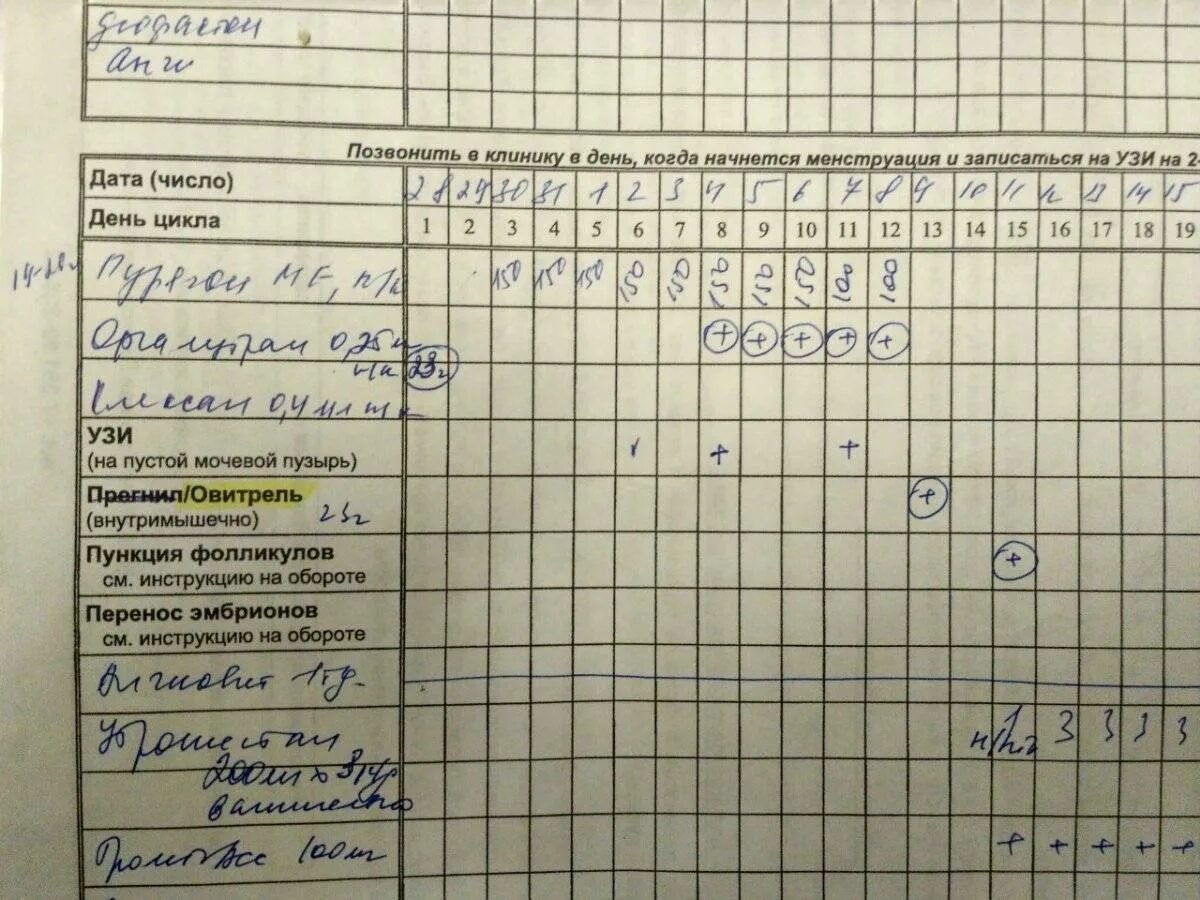 дюфастон
Анги
Позвонить в клинику в день, когда начнется менструация и записаться на УЗИ на 2-
Дата (число) 28 29 30 31 1 2 3 4 5 6 7 8 9 10 11 12 13 14 15
День цикла 1 2 3 4 5 6 7 8 9 10 11 12 13 14 15 16 17 18 19
Пурегон МЕ, п/к 150 150 150 150 150 150 150 150 100 100
Оргалутран 0,25 + + + + +
п/к 23ч
Клексан 0,4 мл п/к
УЗИ
(на пустой мочевой пузырь) v + +
Прегнил/Овитрель +
(внутримышечно) 23ч
Пункция фолликулов +
см. инструкцию на обороте
Перенос эмбрионов
см. инструкцию на обороте
1т
Утрожестан 1 3 3 3 3
200мг х 3 р
вагинально
100мг + + + + +